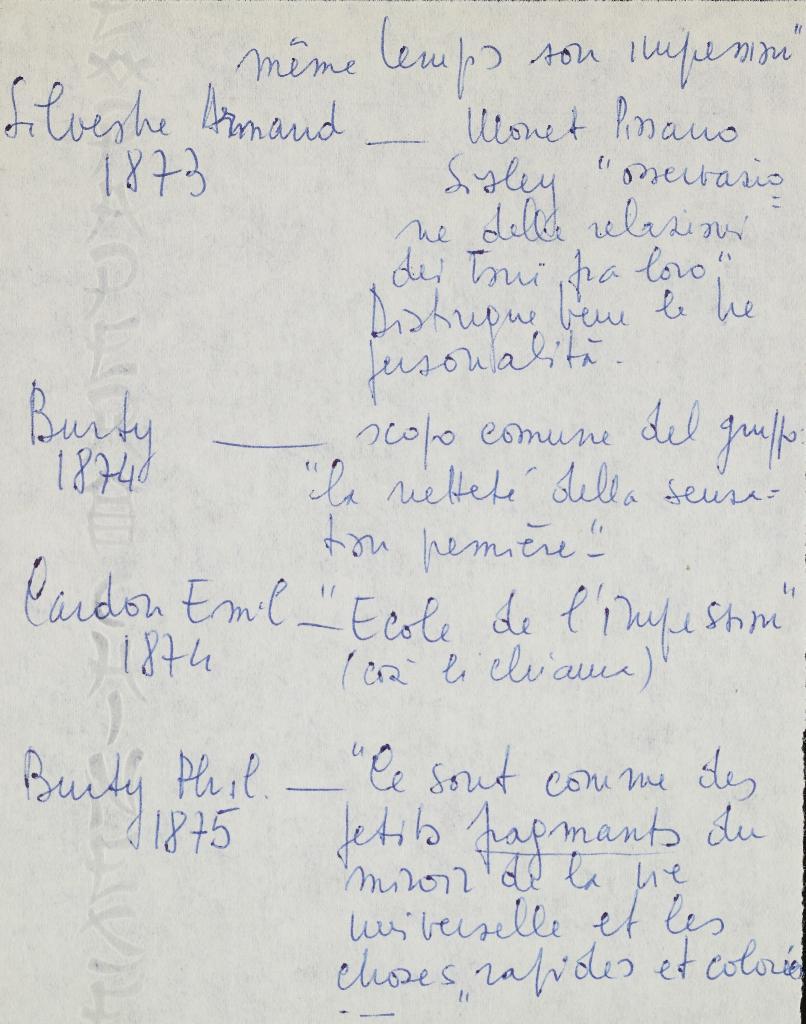 même temps son impression"
Silvestre Armand — Monet Pissarro
1873
Sisley "osservazio=
ne delle relazioni
dei toni fra loro"
Distingue bene le tre
personalità.
Burty — scopo comune del gruppo:
1874
"la netteté della sensa-
tion première"
Cardon Emil — "Ecole de l'Impression"
1874
(così li chiama)
Burty Phil. — "Ce sont comme des
1875
petits fragmants du
miroir de la vie
universelle et les
choses rapides et colorées
"